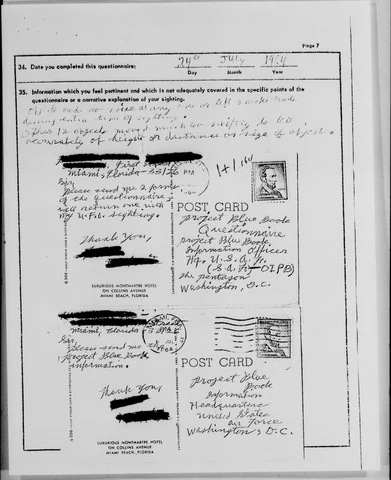 Page 7
34. Date you completed this questionnaire: 24th July 1964
Day Month Year
35. Information which you feel pertinent and which is not adequately covered in the specific points of the
questionnaire or a narrative explanation of your sighting.
made no noise at any time or left smoke trails
during entire time of sighting.
objects moved much too swiftly to be
of height or distance or size of object.
Miami, Florida
Sir,
Please send me 2 forms
of the questionnaire,
will return one with
my U.F.O. sighting.
Thank You,
LUXURIOUS MONTMARTRE HOTEL
ON COLLINS AVENUE
MIAMI BEACH, FLORIDA
PM
POST CARD
Project Blue Book
Questionnaire
Project Blue Book
Information Officer
Hq. U.S.A.F.
OIPB)
The Pentagon
Washington, D.C.
Miami, Florida
Sir,
Please send me
Project Blue Book
information.
Thank You,
LUXURIOUS MONTMARTRE HOTEL
ON COLLINS AVENUE
MIAMI BEACH, FLORIDA
POST CARD
Project Blue
Book
Information
Headquarters
United States
Air Force
Washington D.C.